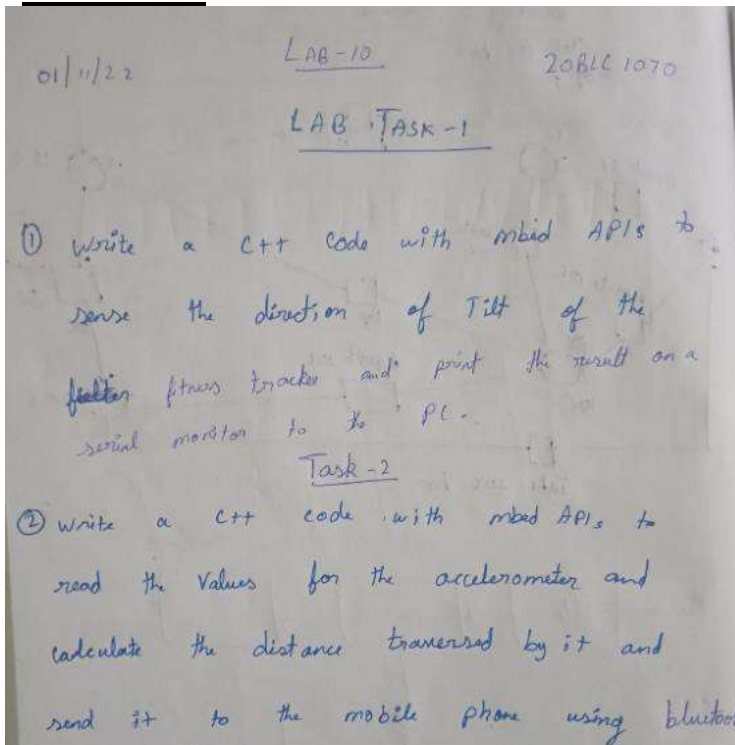 01/11/22 LAB-10 20BLC 1070
LAB TASK-1
① Write a C++ code with mbed APIs to
sense the direction of Tilt of the
fitness tracker and print the result on a
serial monitor to the PC.
Task-2
② Write a C++ code with mbed APIs to
read the values for the accelerometer and
calculate the distance traversed by it and
send it to the mobile phone using bluetoo